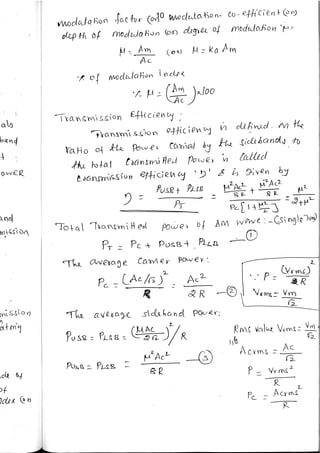 modulation factor (or) modulation co-efficient (or)
depth of modulation (or) degree of modulation 'μ'
μ = Am/Ac (or) μ = Ka Am
% of modulation index
% μ = (Am/Ac) x100
Transmission Efficiency:
Transmission efficiency is defined as the
ratio of the power carried by the sidebands to
the total transmitted power is called
transmission efficiency 'η' & is given by
η = (PUSB + PLSB)/PT = (μ²Ac²/8R + μ²Ac²/8R)/(Pc[1+μ²/2]) = μ²/(2+μ²)
Total Transmitted power of AM wave: (Single Tone)
PT = Pc + PUSB + PLSB —①
The average Carrier power:
Pc = (Ac/√2)²/R = Ac²/2R —②
∵ P = (Vrms)²/R
Vrms = Vm/√2
The average sideband power:
PUSB = PLSB = (μAc/2√2)²/R
PUSB = PLSB = μ²Ac²/8R —③
Rms value Vrms = Vm/√2
Acrms = Ac/√2
P = Vrms²/R
Pc = Acrms²/R